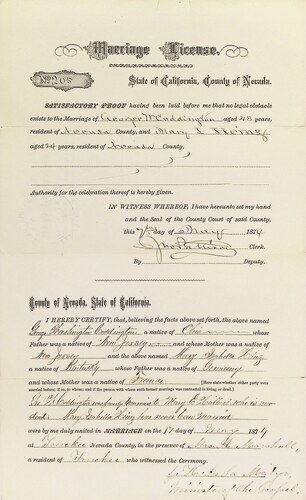 Marriage License.
No 268
State of California, County of Nevada.
SATISFACTORY PROOF having been laid before me that no legal obstacle
exists to the Marriage of George W Cuddington aged 48 years,
resident of Nevada County, and Mary I
aged 34 years, resident of Nevada County.
Authority for the celebration thereof is hereby given.
IN WITNESS WHEREOF, I have hereunto set my hand
and the Seal of the County Court of said County,
this 7th day of May 1874
Clerk.
By Deputy.
County of Nevada, State of California.
I HEREBY CERTIFY, that, believing the facts above set forth, the above named
George Washington Cuddington a native of Ohio whose
Father was a native of New Jersey and whose Mother was a native of
New Jersey and the above named Mary Isabella
a native of Kentucky whose Father was a native of Germany
and whose Mother was a native of France (Here state whether either party was
married before; if so, to whom; and if the person with whom former marriage was contracted is living or dead.)
was formerly married to Mary E who is now
dead. Mary Isabella has never been married
were by me duly united in MARRIAGE on this 17 day of May 1874
at Truckee Nevada County, in the presence of Mrs H Marshall,
a resident of Truckee who witnessed the Ceremony.
Minister of the Gospel